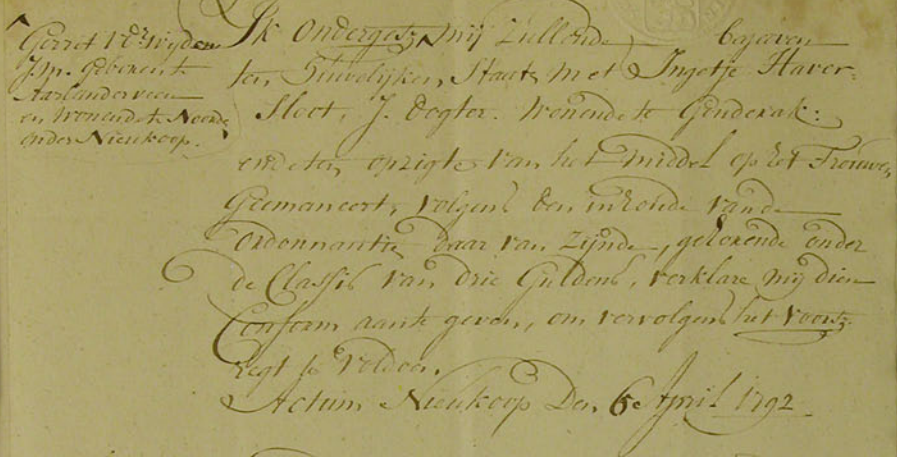 Gerret V:d:r Wijden
J.m. Geboren te
Aarlanderveen
en Wonende te Noorde
onder Nieukoop.
Ik Ondergesz: mij Zullende begeeven
ten Huwelijken Staat, met Ingetje Haver-
Sloot, J. Dogter. Wonende te Genderak:
ende ten opzigte van het middel op het Trouwen
Geemaneert, volgens den inhoude vande
Ordonnantie daar van Zijnde, gehorende onder
de Classis van drie Guldens, verklare mij dien
Conform aan te geven, om vervolgens het voorsz:
regt te Voldoen.
Actum Nieukoop Den 6e April 1792